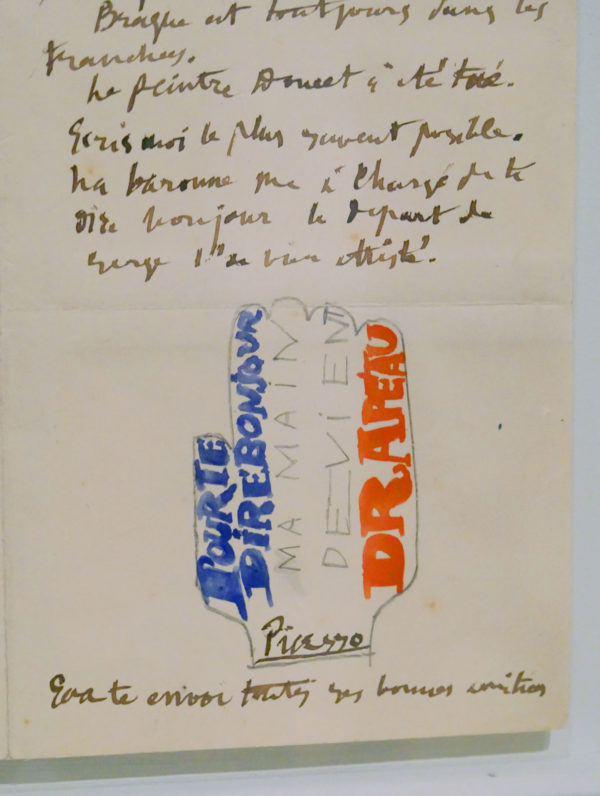 Braque est toutjours dans les
tranchees.
Le peintre Doucet a été tué.
Ecris moi le plus souvent posible.
La baronne ma a chargé de te
dire bonjour le depart de
Serge l'a bien attristé.
POUR TE
DIRE BONJOUR
MA MAIM
DEVIENT
DRAPEAU
Picasso
Eva te envoi toutes ses bonnes amities